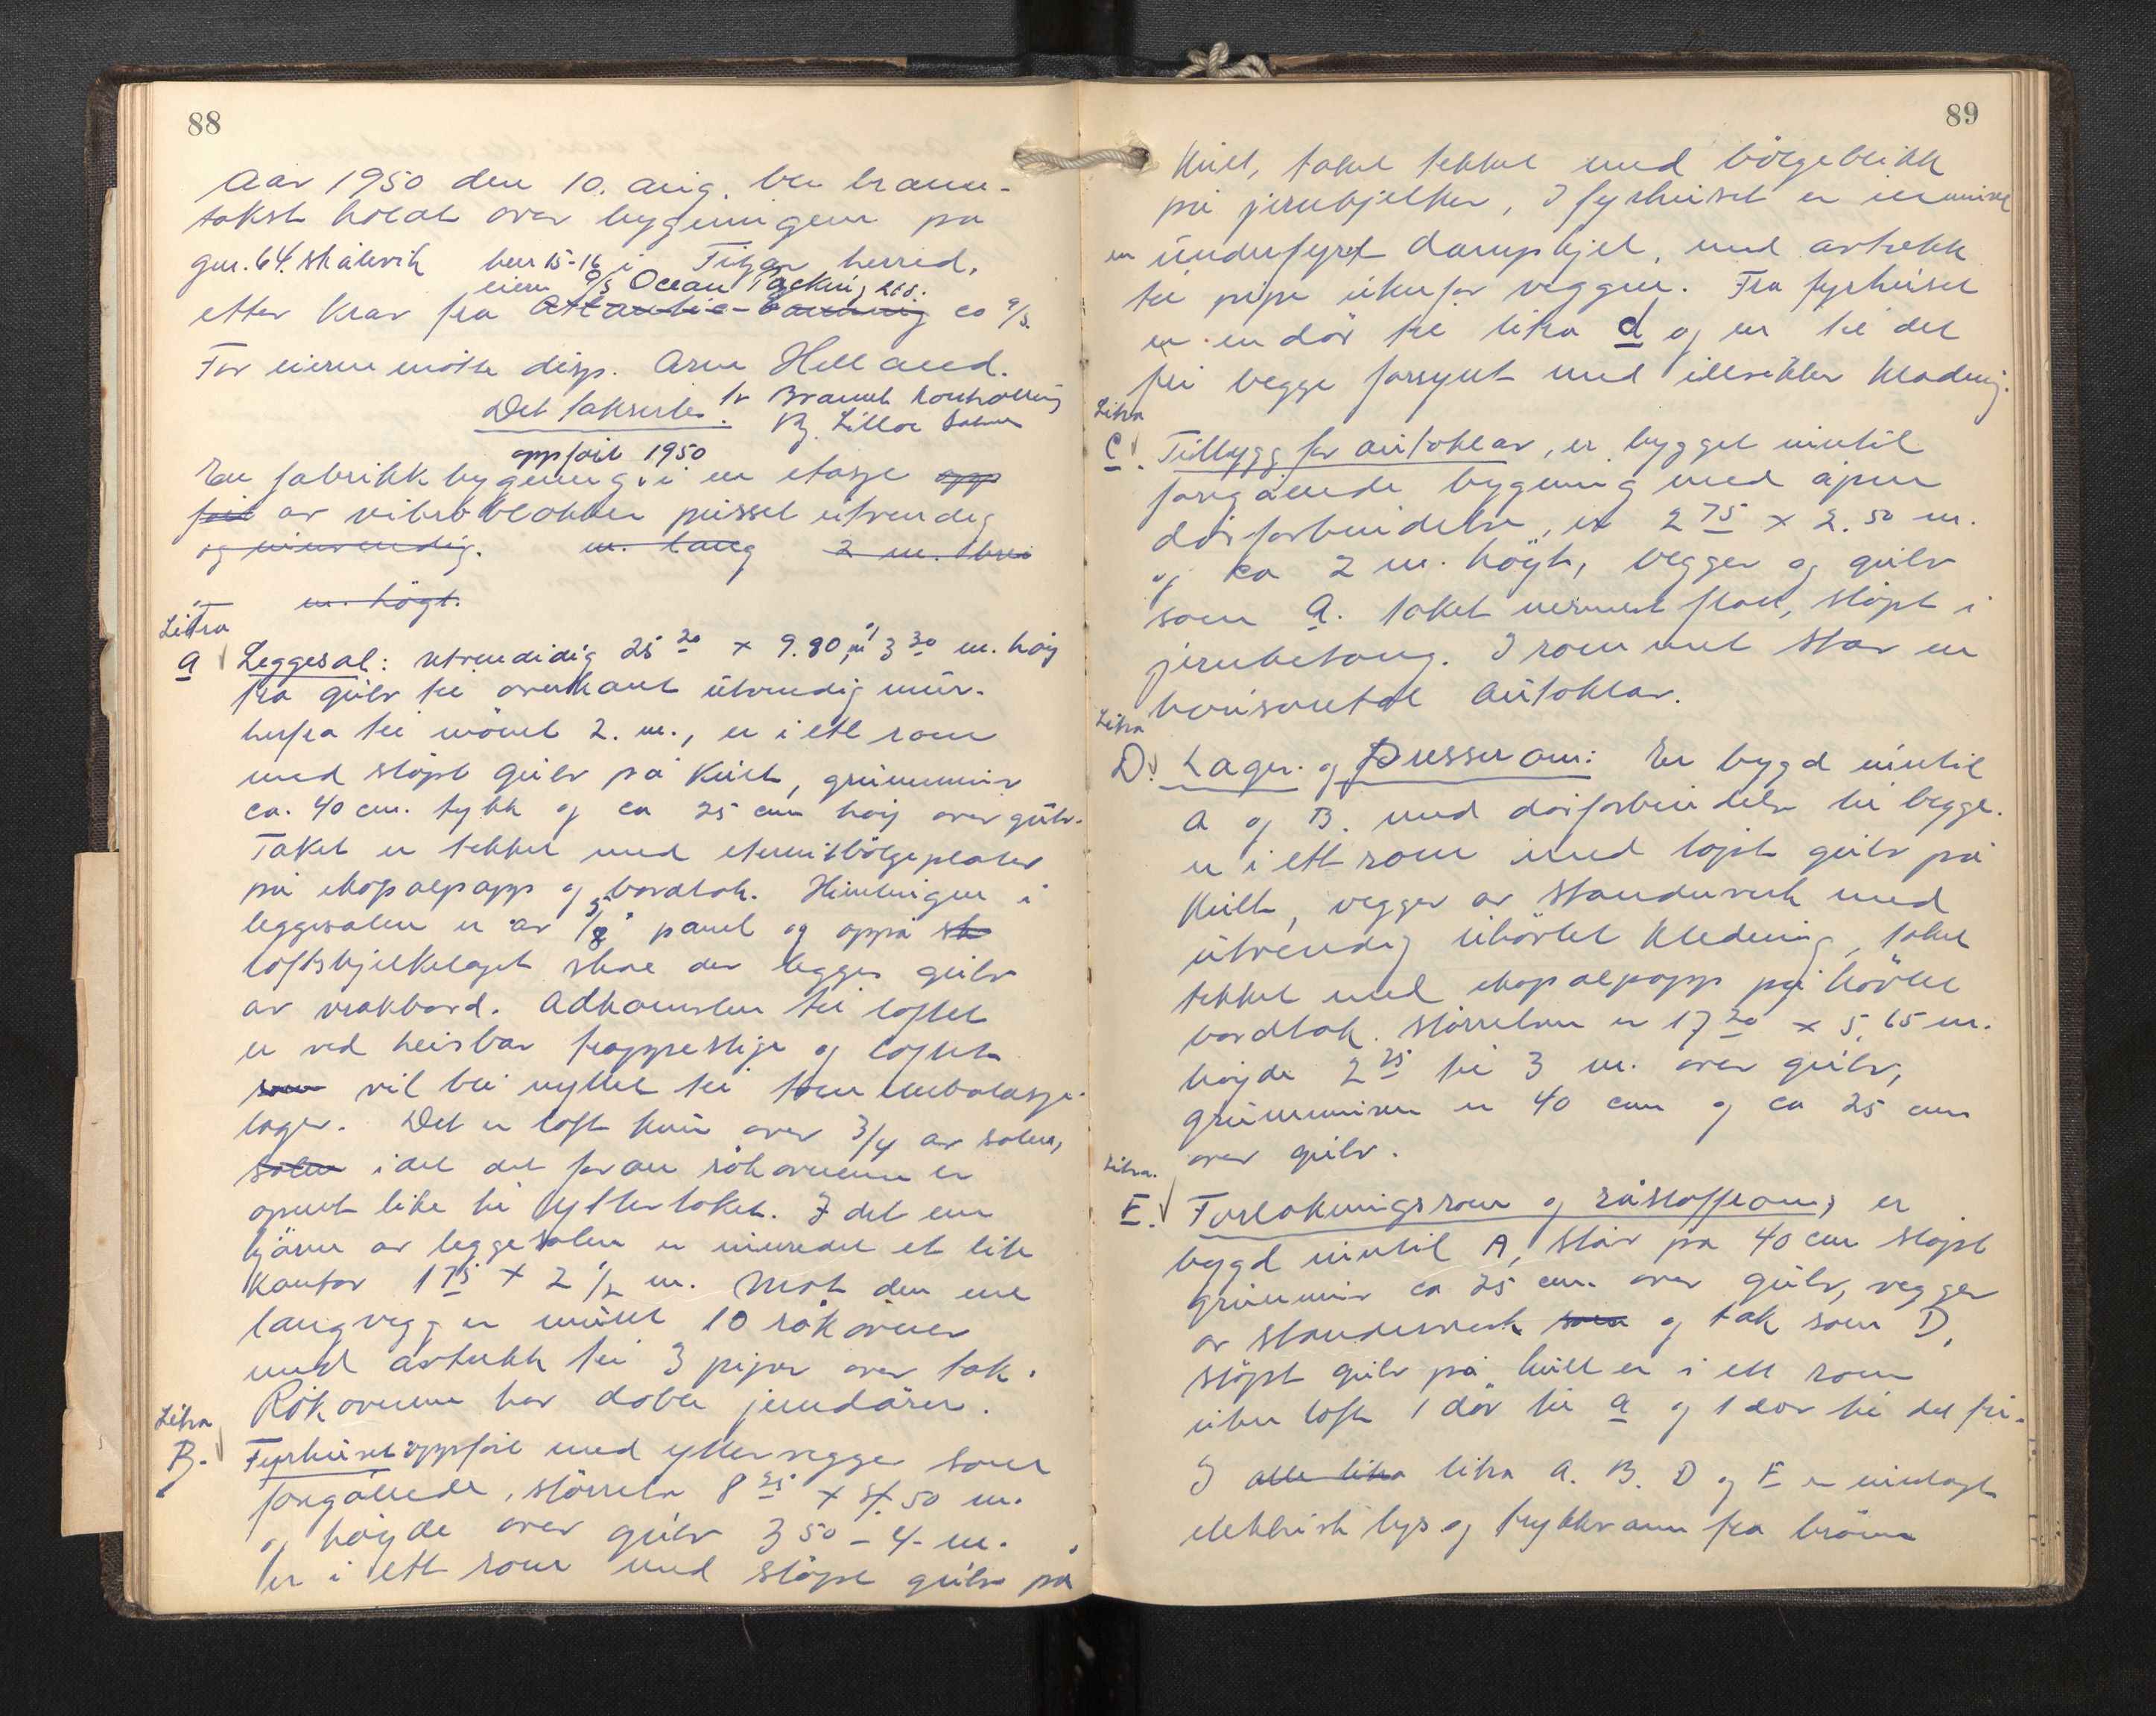 88
Aar 1950 den 10. aug. ble brann-
takst holdt over bygningen på
gnr. 64. Skålevik bnr 15-16 i Fitjar herred,
eiere A/S Ocean Packing Ltd.
etter krav fra Atlantic-Canning Co A/S.
For eieren møtte disp. Arne Helland.
Det takserte: Branch
B. Lilloe
oppført 1950
En fabrikkbygning i en etasje opp
ført av vibroblokker pusset utvendig
og innvendig. m. lang 2 m. brei
m. högt.
Litra
a Leggesal: utvendidig 25 20 x 9.80 m 3 30 m. høy
fra gulv til overkant utvendig mur.
herfra til mönet 2. m., er i ett rom
med støpt gulv på kult, grunnmur
ca. 40 cm. tykk og ca 25 cm høy over gulv.
Taket er tekket med eternitbölgeplater
på ekopalpapp og bordtak. Himlingen i
leggesalen er av 5/8" panel og oppå
loftsbjelkelaget skal der legges gulv
av vrakbord. Adkomsten til loftet
er ved heisbar trappestige og loftet
som vil bli nyttet til tom embalasje-
lager. Det er loft kun over 3/4 av salen,
salen idet det foran rökovnene er
åpent like til yttertaket. I det ene
hjörne av leggesalen er innredet et lite
kontor 1 75 x 2 1/2 m. Mot den ene
langvegg er murt 10 rökovner
med avtrekk til 3 piper over tak.
Rökovnene har doble jerndörer.
Litra
B. Fyrhuset oppført med yttervegger som
foregående, störrelse 8 25 x 4 50 m.
og høyde over gulv 3 50 - 4 - m.
er i ett rom med støpt gulv på
89
kult, taket tekket med bölgeblikk
på jernbjelker, I fyrhuset er innmurt
en underfyrt dampkjel, med avtrekk
til pipe utenfor veggen. Fra fyrhuset
er en dör til litra d og en til det
fri begge forsynt med illsikker kledning.
Litra
C. Tilbygg for autoklav, er bygget inntil
foregående bygning med åpen
dörforbindelse, er 2 75 x 2.50 m.
og ca 2 m. høyt, vegger og gulv
som a. taket nærmest flatt, støpt i
jernbetong. I rommet står en
horisontal autoklav.
Litra
D. Lager- og presserom: Er bygd inntil
A og B. med dörforbindelse til begge.
er i ett rom med støpt gulv på
kult, vegger av standerverk med
utvendig uhövlet kledning, taket
tekket med ekopalpapp på hövlet
bordtak. Störrelsen er 17 20 x 5,65 m.
høyde 2 25 til 3 m. over gulv,
grunnmuren er 40 cm og ca 25 cm
over gulv.
Litra.
E. Forlakningsrom og råstoffrom, er
bygd inntil A, står på 40 cm støpt
grunnmur ca 25 cm. over gulv, vegger
av standerverk som og tak som D.
støpt gulv på kult er i ett rom
uten loft 1 dör til a og 1 dör til det fri.
I alle litra litra A. B. D og E er innlagt
elektrisk lys og trykkvann fra brönn